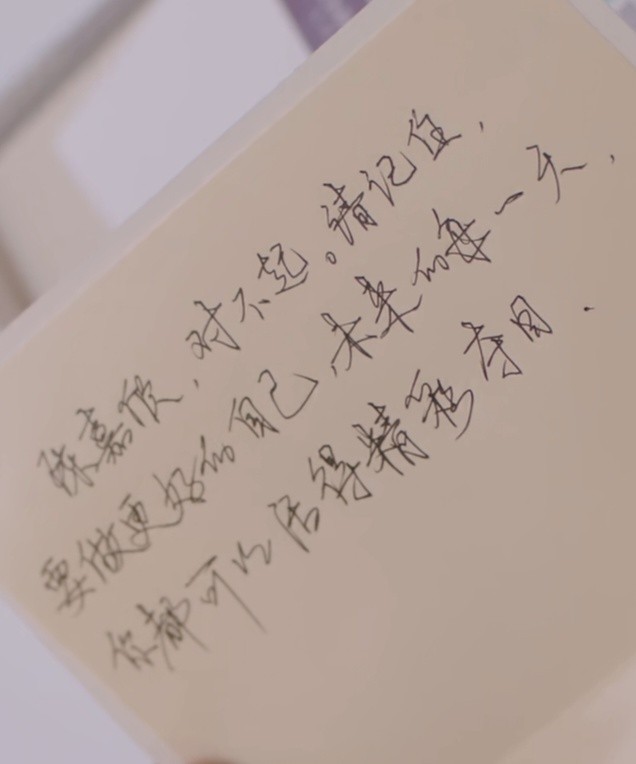 陈嘉欣,对不起。请记住,
要做更好的自己,未来的每一天,
你都可以活得精彩夺目.